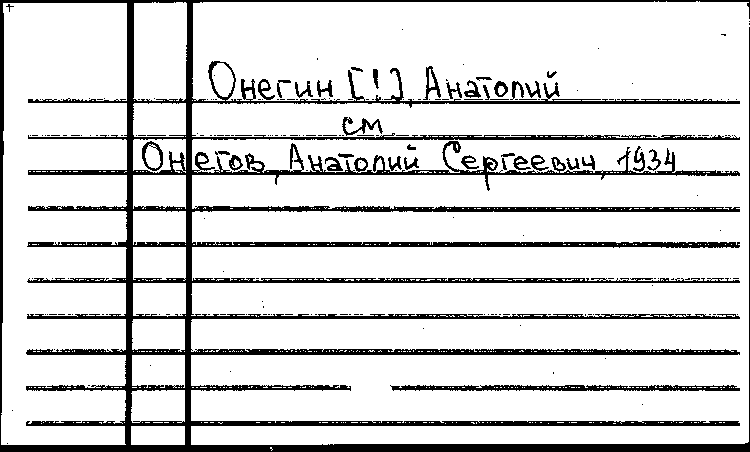 Онегин [!], Анатолий
см.
Онегов, Анатолий Сергеевич, 1934